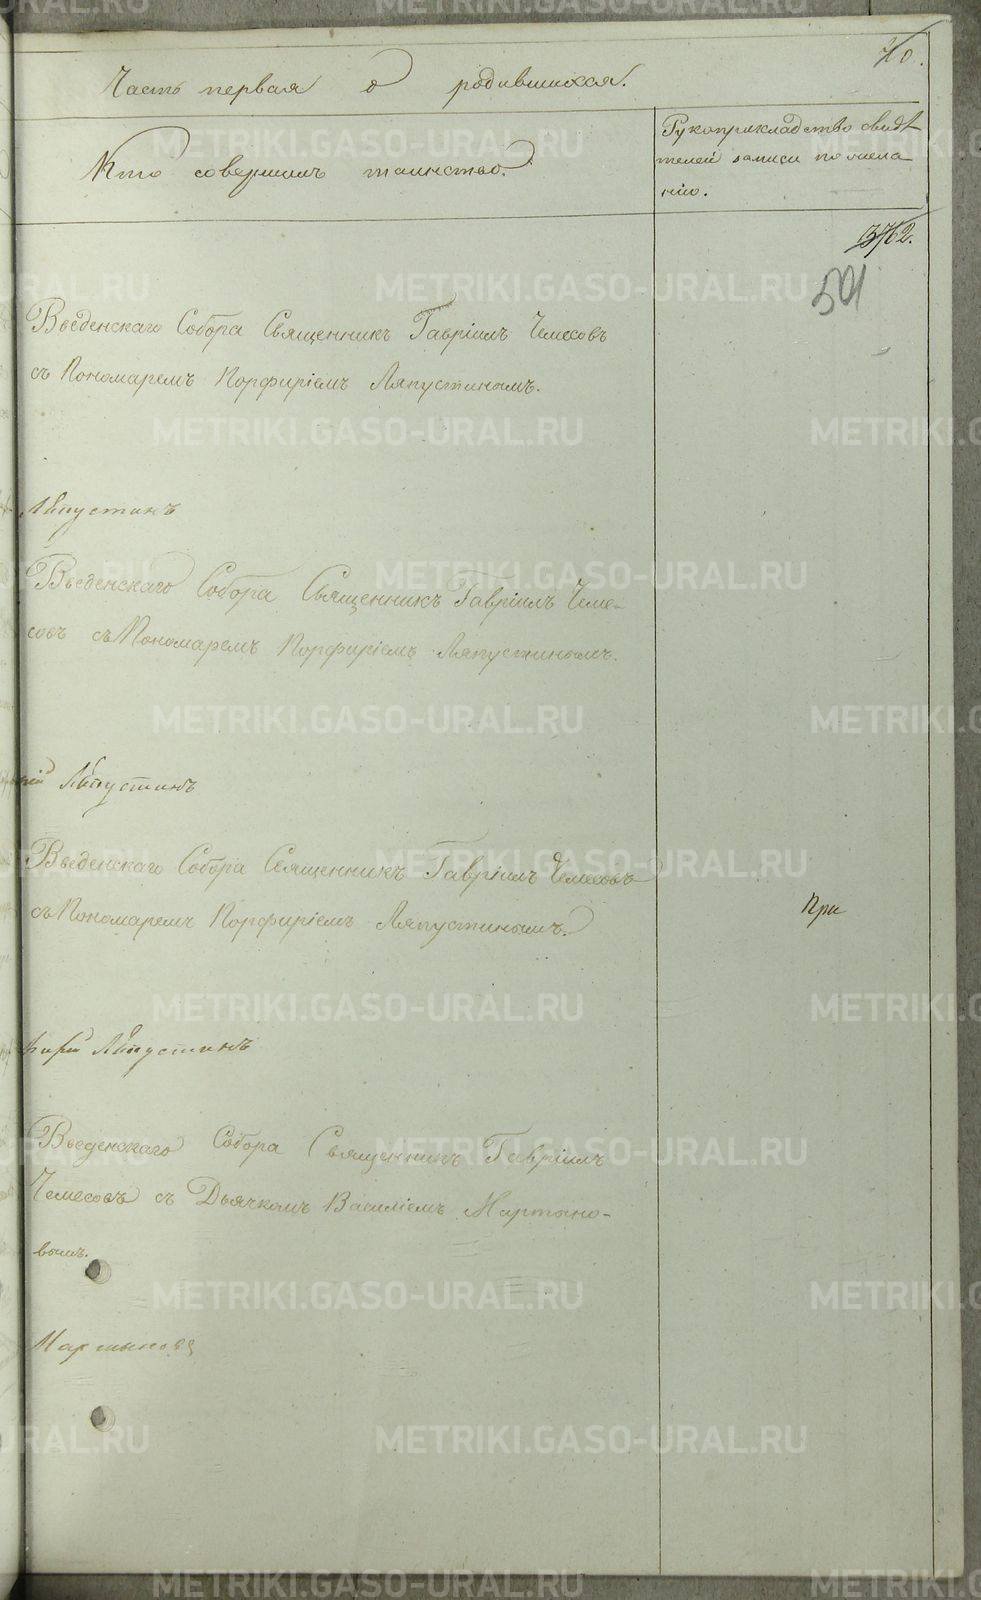 70.
Часть первая о родившихся.
Кто совершилъ таинство.
Рукоприкладство свидѣ
телей записи по жела
нію.
372.
501
Введенскаго Собора Священникъ Гавріилъ Чемесовъ
съ Пономаремъ Порфиріемъ Ляпустинымъ.
Ляпустинъ
Введенскаго Собора Священникъ Гавріилъ Чеме-
совъ съ Пономаремъ Порфиріемъ Ляпустинымъ.
рій Ляпустинъ
Введенскаго Собора Священникъ Гавріилъ Чемесовъ
съ Пономаремъ Порфиріемъ Ляпустинымъ.
При
фирій Ляпустинъ
Введенскаго Собора Священникъ Гавріилъ
Чемесовъ съ Дьячкомъ Василіемъ Мартыно-
вымъ.
Мартыновъ
METRIKI.GASO-URAL.RU